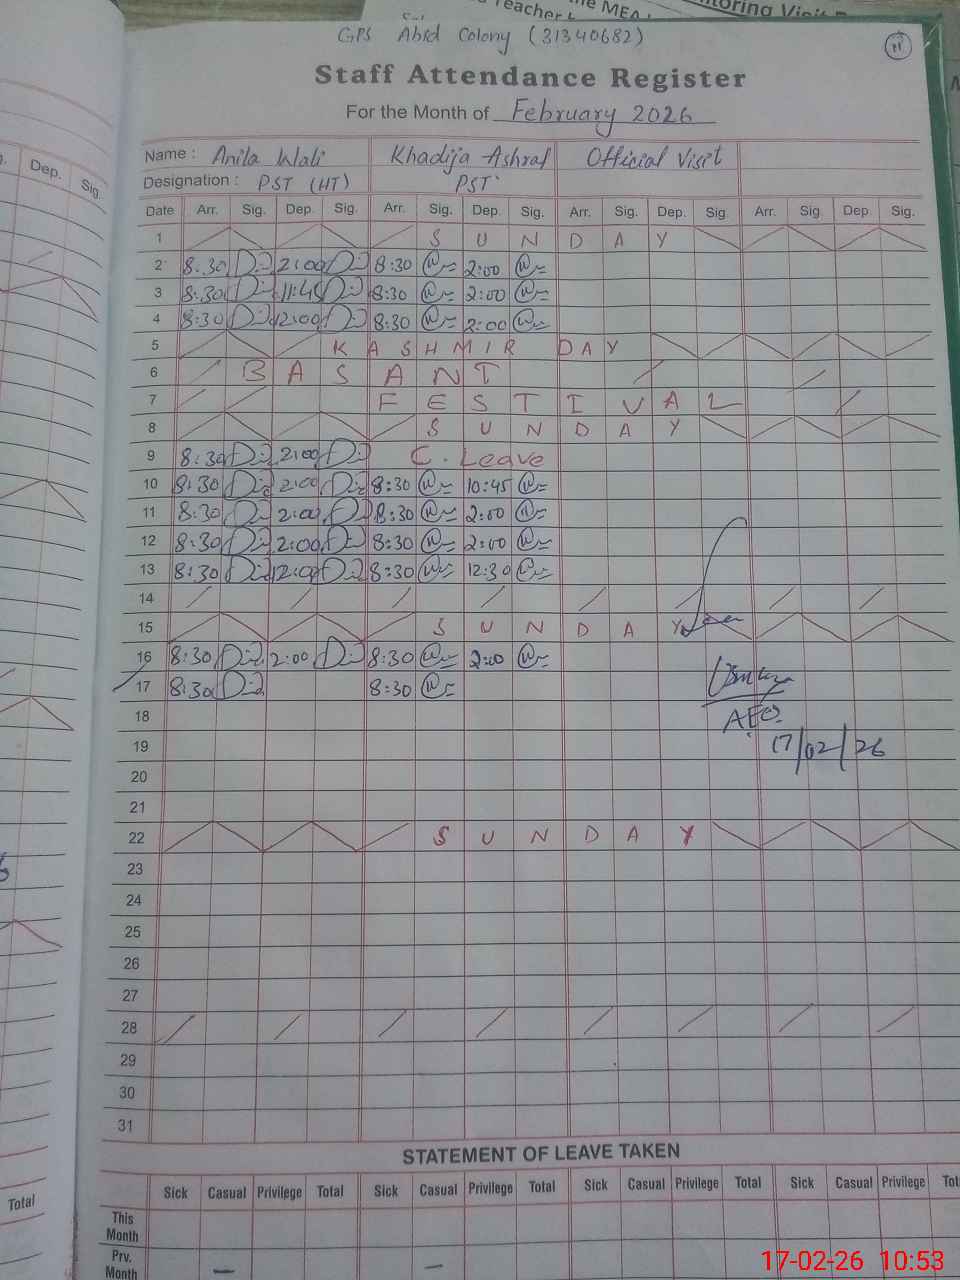 Teacher
the MEA
toring Visit
GPS Abid Colony (31340682)
11
Staff Attendance Register
For the Month of February 2026
Name : Anila Wali Khadija Ashraf Official Visit
Designation : PST (HT) PST
Date Arr. Sig. Dep. Sig. Arr. Sig. Dep. Sig. Arr. Sig. Dep. Sig. Arr. Sig. Dep. Sig.
1 S U N D A Y
2 8:30 2:00 8:30 2:00
3 8:30 11:45 8:30 2:00
4 8:30 2:00 8:30 2:00
5 K A S H M I R D A Y
6 B A S A N T
7 F E S T I V A L
8 S U N D A Y
9 8:30 2:00 C. Leave
10 8:30 2:00 8:30 10:45
11 8:30 2:00 8:30 2:00
12 8:30 2:00 8:30 2:00
13 8:30 12:00 8:30 12:30
14
15 S U N D A Y
16 8:30 2:00 8:30 2:00
17 8:30 8:30
18
AEO.
19
17/02/26
20
21
22 S U N D A Y
23
24
25
26
27
28
29
30
31
STATEMENT OF LEAVE TAKEN
Sick Casual Privilege Total Sick Casual Privilege Total Sick Casual Privilege Total Sick Casual Privilege Tot
This Month
Prv. Month — —
Dep. Sig.
Total
17-02-26 10:53